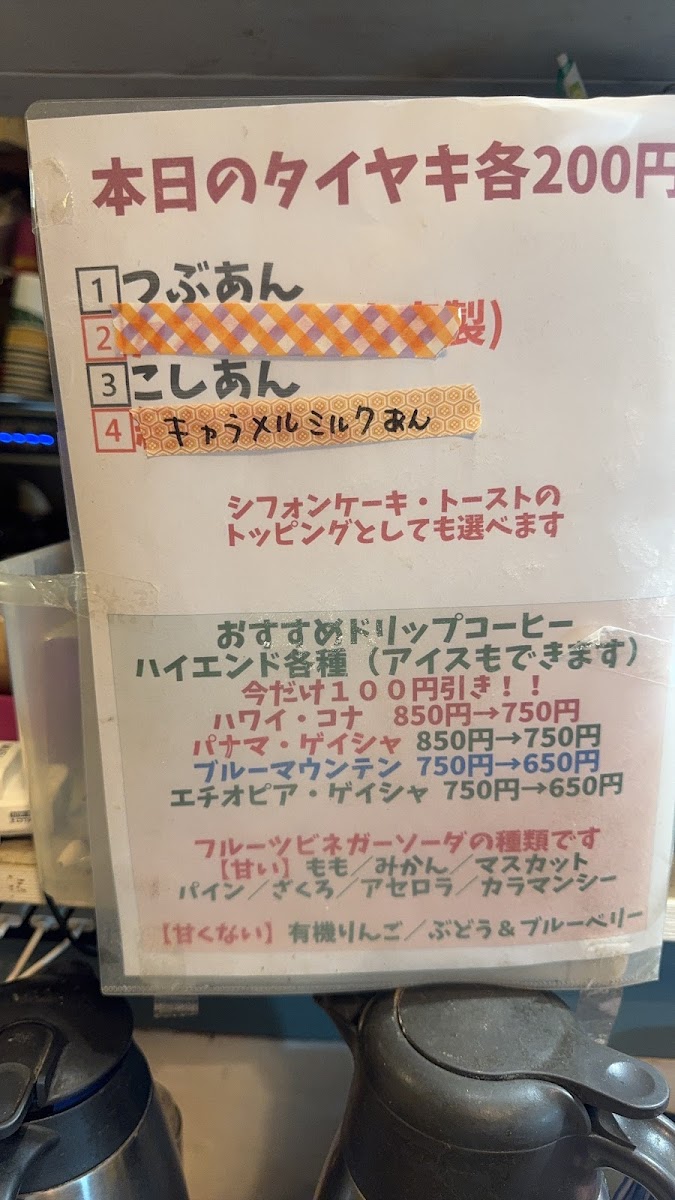 本日のタイヤキ各200円
1 つぶあん
2 製)
3 こしあん
4 キャラメルミルクあん
シフォンケーキ・トーストの
トッピングとしても選べます
おすすめドリップコーヒー
ハイエンド各種（アイスもできます）
今だけ１００円引き！！
ハワイ・コナ 850円→750円
パナマ・ゲイシャ 850円→750円
ブルーマウンテン 750円→650円
エチオピア・ゲイシャ 750円→650円
フルーツビネガーソーダの種類です
【甘い】もも／みかん／マスカット
パイン／ざくろ／アセロラ／カラマンシー
【甘くない】有機りんご／ぶどう＆ブルーベリー